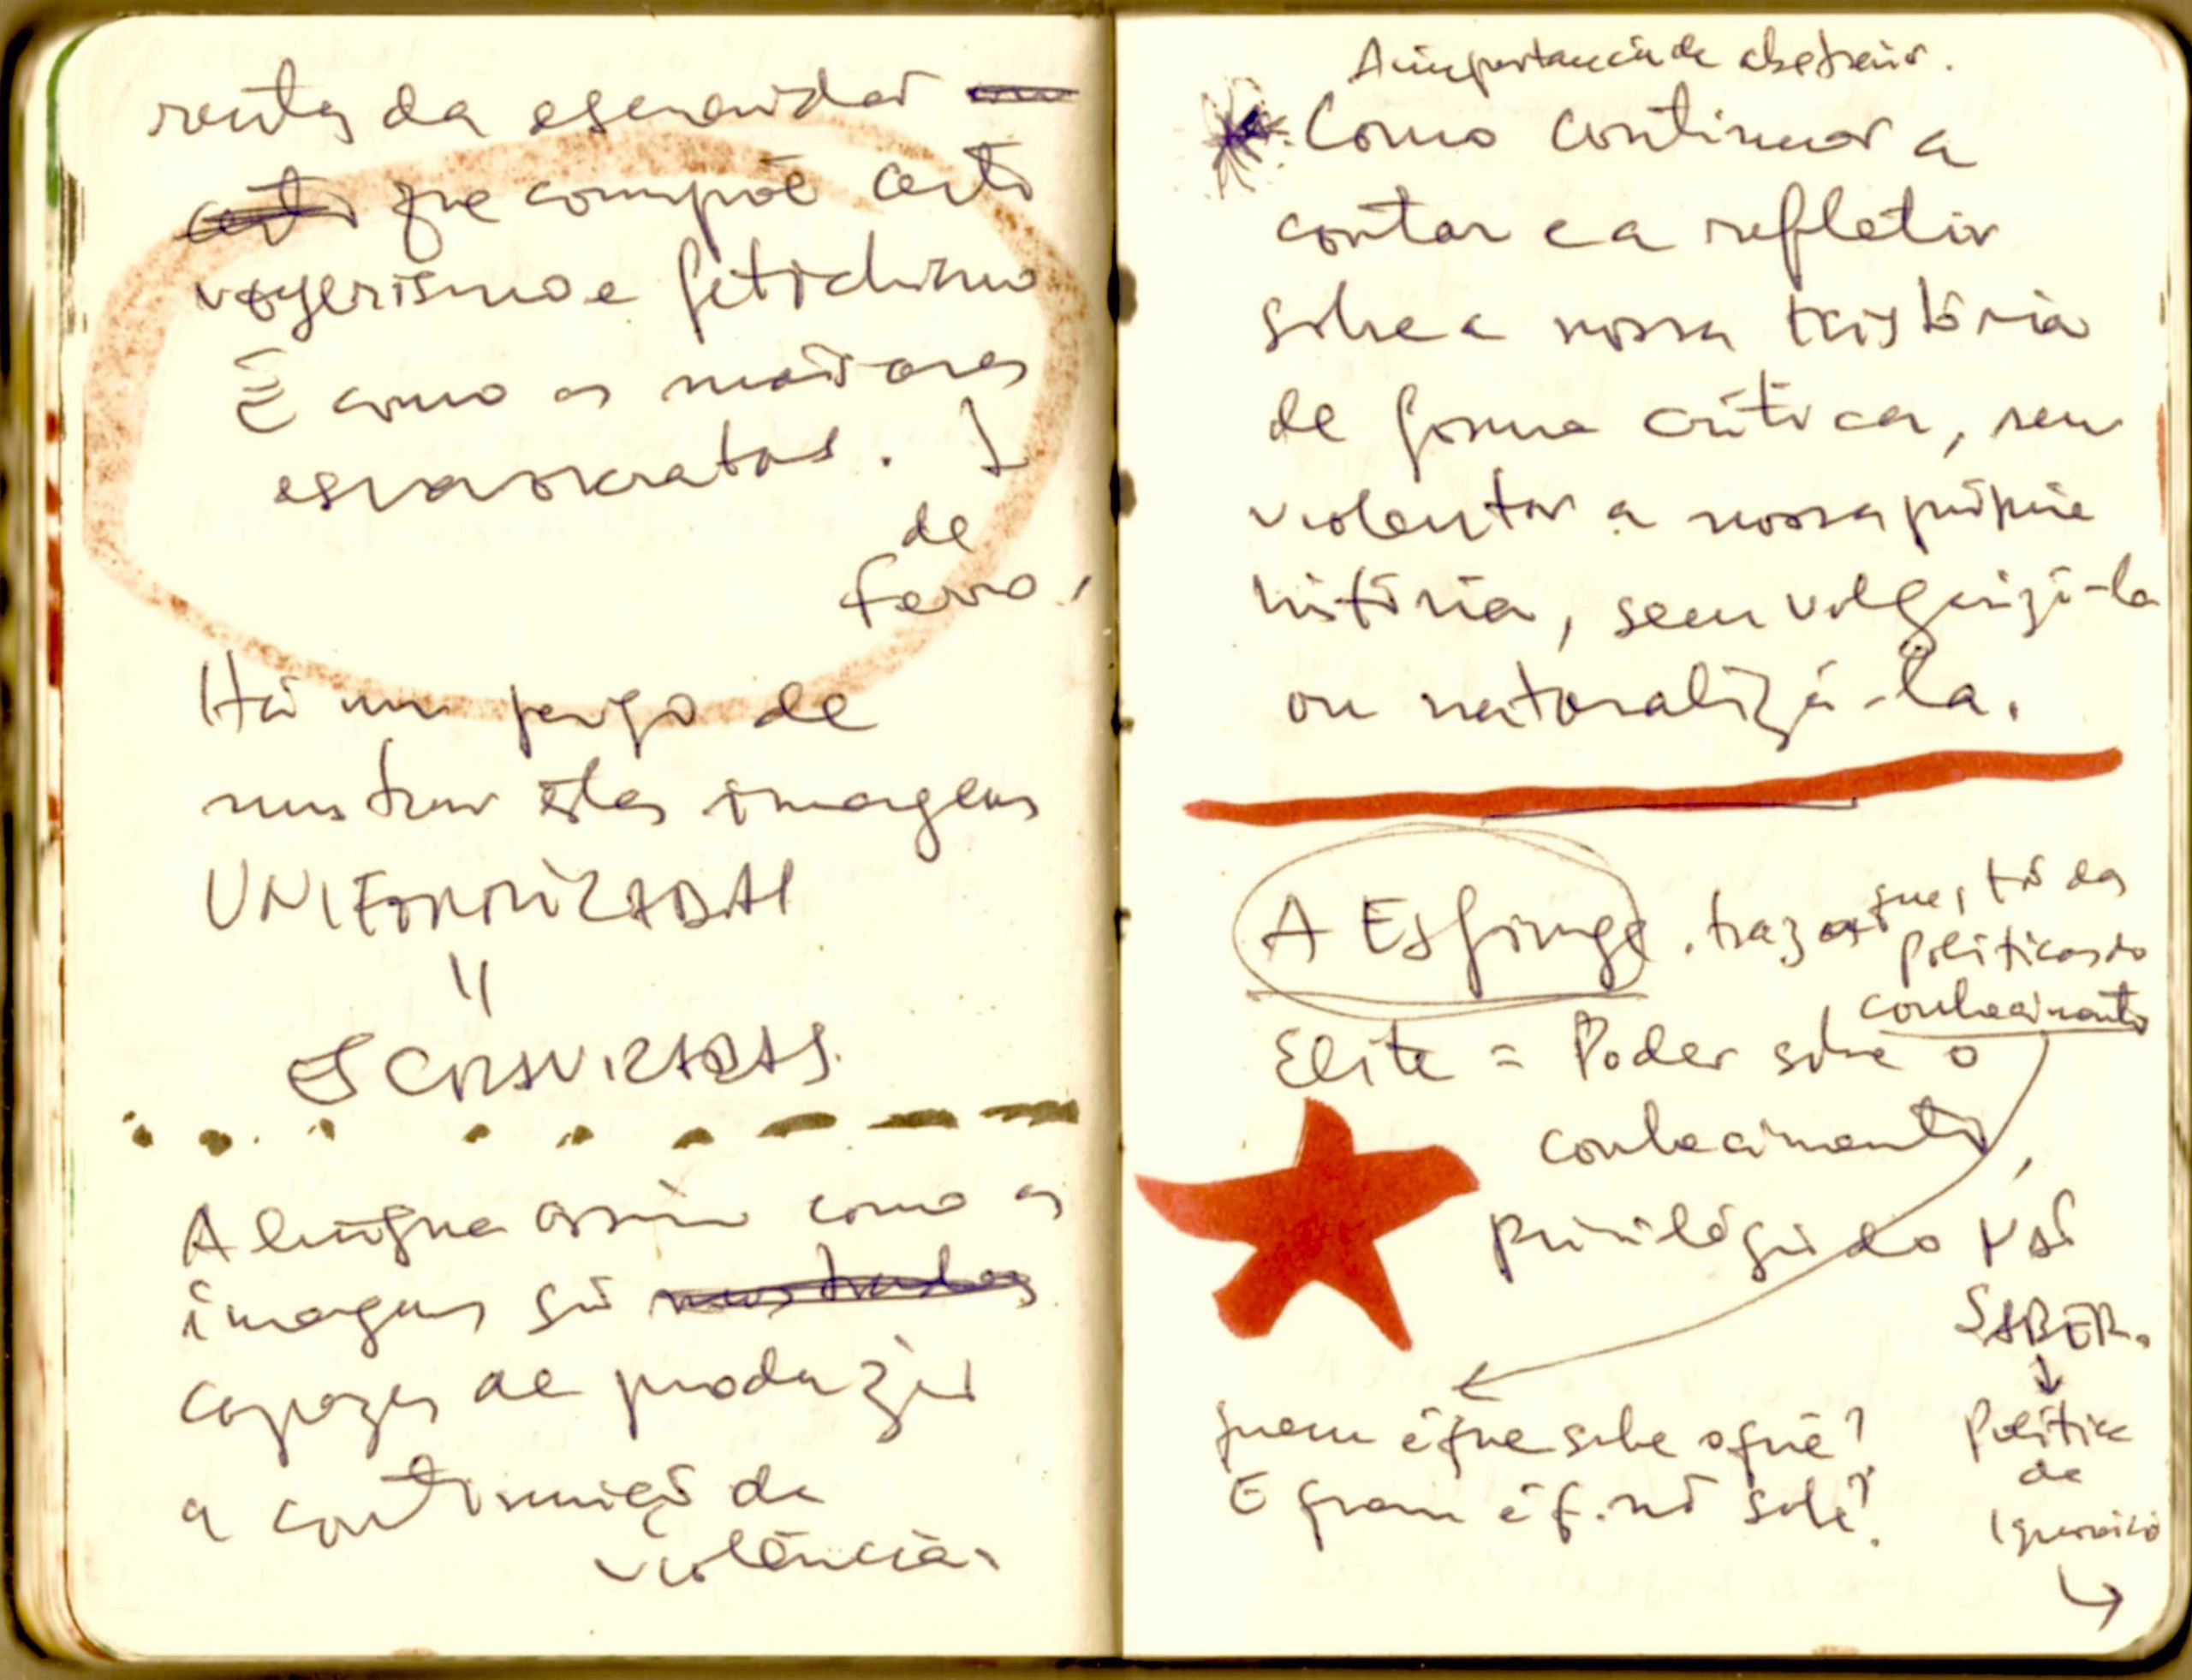 da escravidão
que compõe certo
voyerismo e fetichismo
É como as máscaras
de
ferro.
Há um perigo de
mostrar estas imagens
UNIFORMIZADAS
=
ESCRAVIZADAS.
A língua assim como as
imagens são mostradas
capazes de produzir
a continuação da
violência.
A importancia de abstrair.
Como continuar a
contar e a refletir
sobre a nossa história
de forma crítica, sem
violentar a nossa própria
história, sem vulgarizá-la
ou naturalizá-la.
A Esfinge. traz questão das
políticas do
conhecimento
Elite = Poder sobre o
conhecimento,
privilégio do NÃO
SABER.
Política
de
quem é que sabe o quê?
E quem é q. não sabe?